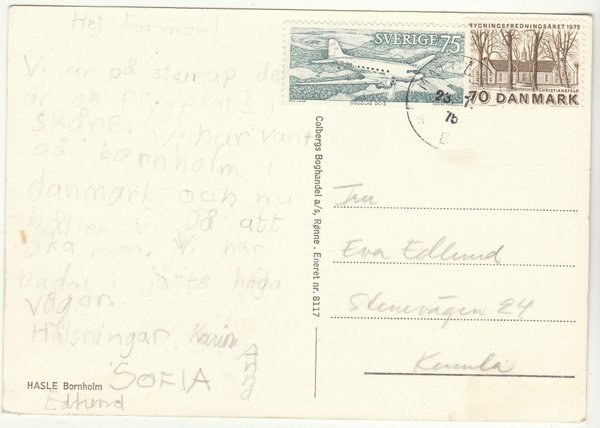 Hej Farmor!
Vi är på sturup de
är en flygplats i
skåne. Vi har varit
på bornholm i
danmark och nu
håller vi på att
åka hem. Vi har
badat i jätte höga
vågor.
Hälsningar Karin
Anna
SOFIA
Edlund
HASLE Bornholm
Colbergs Boghandel a/s, Rønne . Eneret nr. 8117
SVERIGE 75
DOUGLAS DC-3
BYGNINGSFREDNINGSÅRET 1975
CHRISTIANSFELD
70 DANMARK
75
Eva Edlund
Stenevägen 24
Kumla